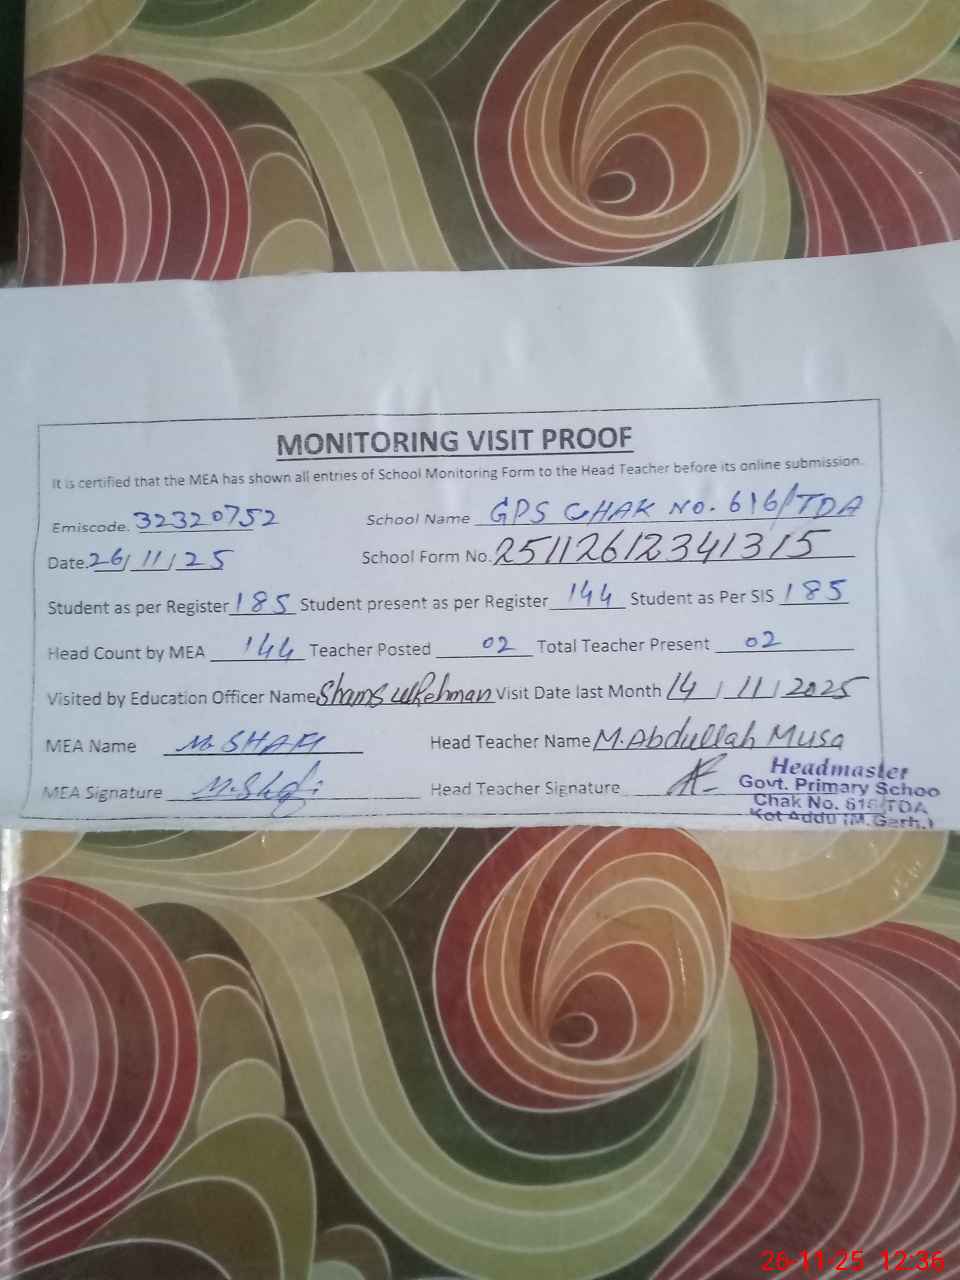 MONITORING VISIT PROOF
It is certified that the MEA has shown all entries of School Monitoring Form to the Head Teacher before its online submission.
Emiscode. 32320752 School Name GPS CHAK NO. 616/TDA
Date. 26/11/25 School Form No. 25112612341315
Student as per Register 185 Student present as per Register 144 Student as Per SIS 185
Head Count by MEA 144 Teacher Posted 02 Total Teacher Present 02
Visited by Education Officer Name Shams ulRehman Visit Date last Month 14/11/2025
MEA Name M. SHAFI Head Teacher Name M. Abdullah Musa
MEA Signature M. Shafi Head Teacher Signature
Headmaster
Govt. Primary Schoo
Chak No. 616/TDA
Kot Addu (M.Garh.)
26-11-25 12:36